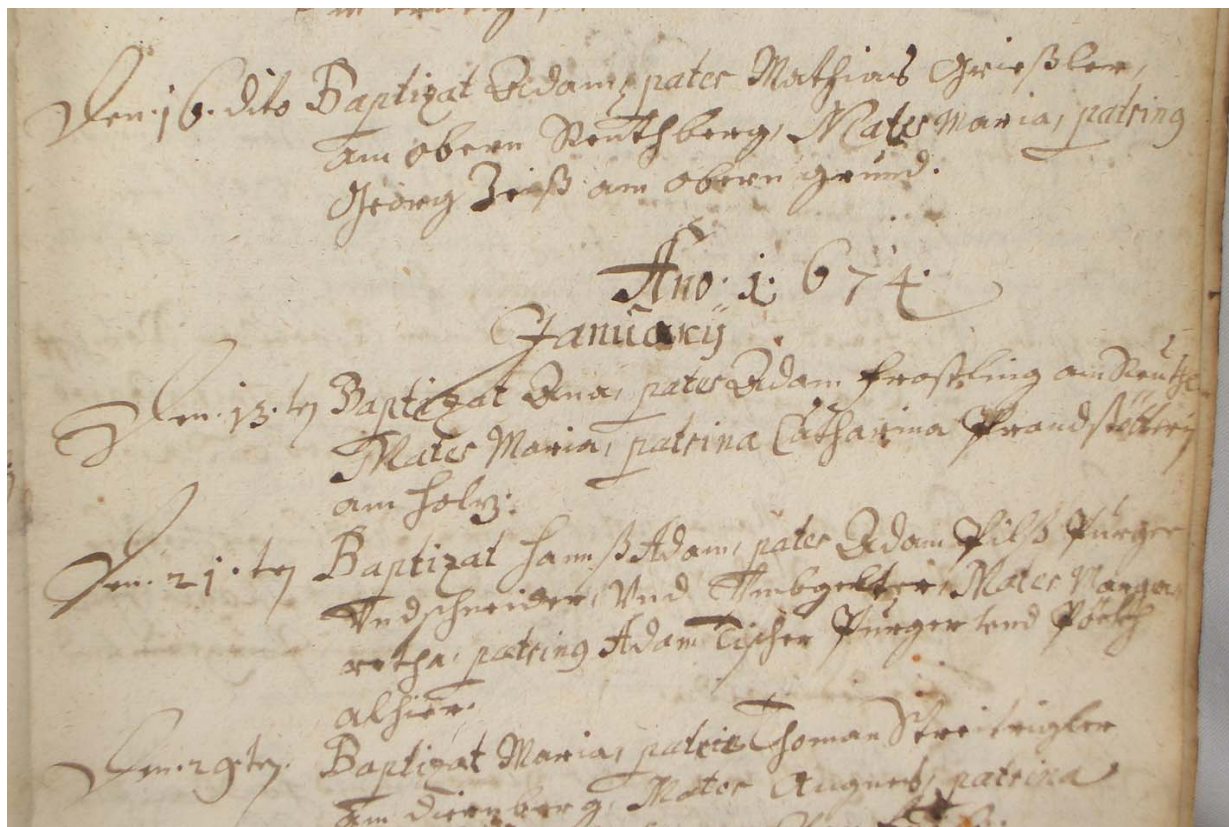 Den 16. dito Baptizat Adam, pater Mathias Grießler,
am obern Reuthberg, Mater Maria, patrinus
Georg Zeiß am obern grund.
Ano. 1. 674.
January
Den. 13. ten Baptizat Ana, pater Adam frostling am
Mater Maria, patrina Catharina Prandstötterin
am holz:
Den. 21. ten Baptizat Hannß Adam, pater Adam Pilß Purger
Undschneider, Und Umbgelter, Mater Marga,
retha, patrinus Adam Tischer Purger und
alhier.
Den. 29. ten. Baptizat Maria, patris Thoman Streitrigler
am Diernberg, Mater Augnes, patrina